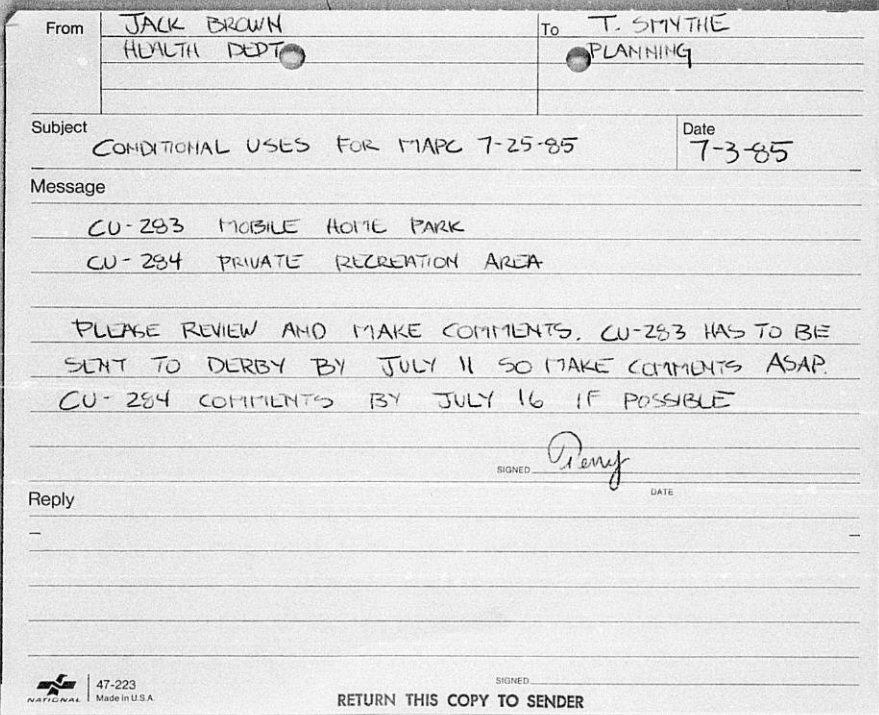 From JACK BROWN To T. SMYTHE
HEALTH DEPT PLANNING
Subject CONDITIONAL USES FOR MAPC 7-25-85 Date 7-3-85
Message
CU-283 MOBILE HOME PARK
CU-284 PRIVATE RECREATION AREA
PLEASE REVIEW AND MAKE COMMENTS. CU-283 HAS TO BE
SENT TO DERBY BY JULY 11 SO MAKE COMMENTS ASAP.
CU-284 COMMENTS BY JULY 16 IF POSSIBLE
SIGNED
DATE
Reply
SIGNED
NATIONAL 47-223
Made in U.S.A.
RETURN THIS COPY TO SENDER